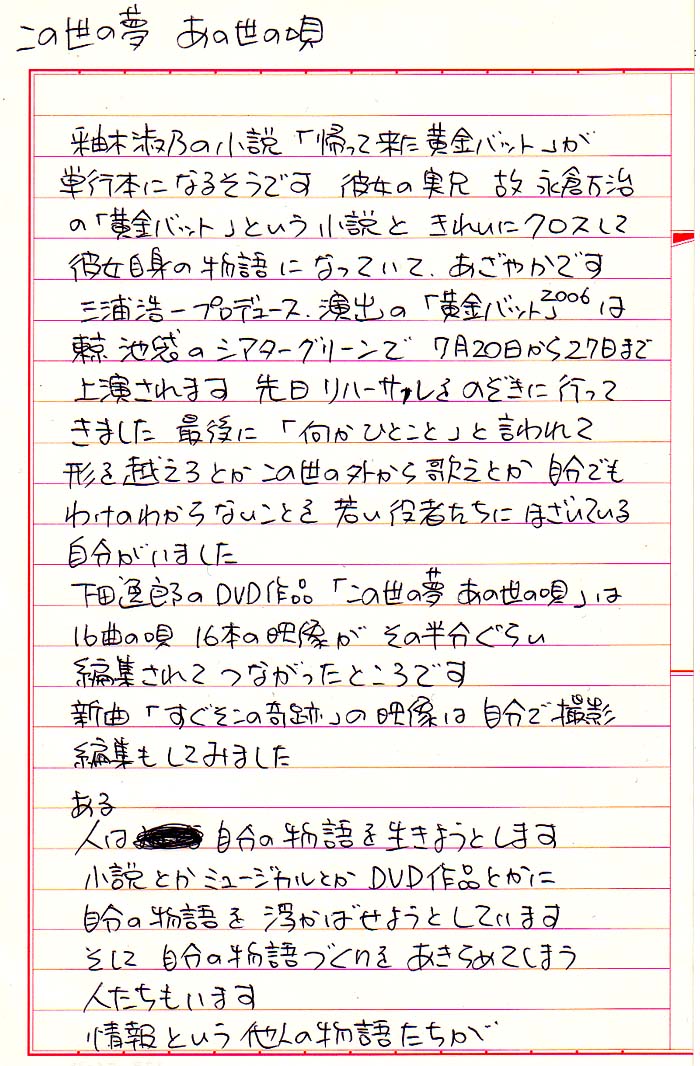 この世の夢 あの世の唄
釉木淑乃の小説「帰って来た黄金バット」が
単行本になるそうです 彼女の実兄 故 永倉万治
の「黄金バット」という小説と きれいにクロスして
彼女自身の物語になっていて、あざやかです
三浦浩一プロデュース、演出の「黄金バット」2006は
東京 池袋のシアターグリーンで 7月20日から27日まで
上演されます 先日 リハーサルをのぞきに行って
きました 最後に「何かひとこと」と言われて
形を越えろとか この世の外から歌えとか 自分でも
わけのわからないことを 若い役者たちに ほざいている
自分がいました
下田逸郎のDVD作品「この世の夢 あの世の唄」は
16曲の唄 16本の映像が その半分ぐらい
編集されて つながったところです
新曲「すぐそこの奇跡」の映像は 自分で撮影
編集もしてみました
ある
人は 自分の物語を生きようとします
小説とかミュージカルとか DVD作品とかに
自分の物語を 浮かばせようとしています
そして 自分の物語づくりを あきらめてしまう
人たちもいます
情報という他人の物語たちが